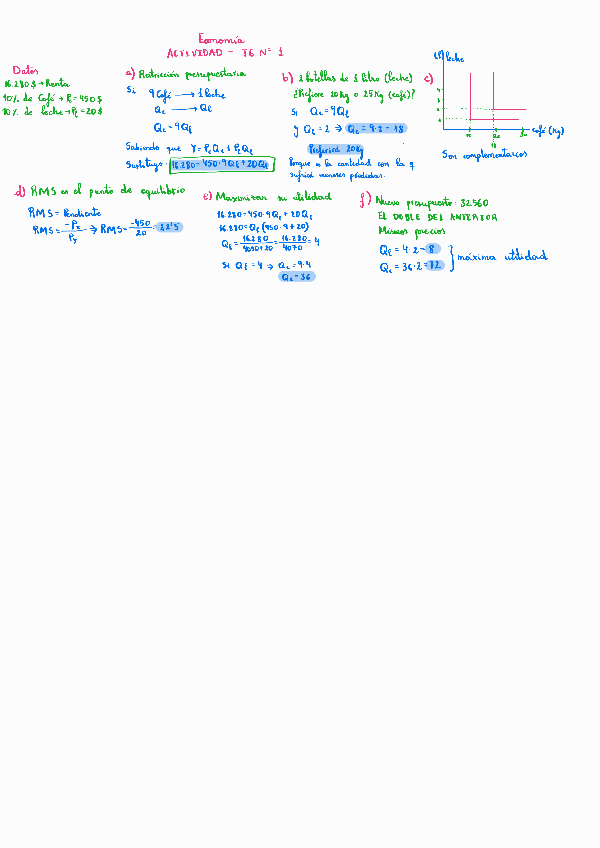 Economía
ACTIVIDAD - T6 Nº 1
Datos
16.280$ → Renta
10% de Café → Pc = 450$
10% de leche → Pl = 20$
a) Restricción presupuestaria
Si 9 Café → 1 leche
Qc → Ql
Qc = 9Ql
Sabiendo que Y = Pc Qc + Pl Ql
Sustituyo: 16.280 = 450·9Ql + 20Ql
b) 2 botellas de 1 litro (leche)
¿Prefiere 20Kg o 25Kg (café)?
Si Qc = 9Ql
y Ql = 2 → Qc = 9·2 = 18
Preferirá 20Kg
Porque es la cantidad con la q
sufrirá menores pérdidas.
c)
(l) leche
café (Kg)
Son complementarios
d) RMS en el punto de equilibrio
RMS = Pendiente
RMS = -Px/Py → RMS = -450/20 = 22'5
e) Maximizar su utilidad
16.280 = 450·9Ql + 20Ql
16.280 = Ql (450·9+20)
Ql = 16.280/4050+20 = 16.280/4070 = 4
Si Ql = 4 → Qc = 9·4
Qc = 36
f) Nuevo presupuesto: 32560
EL DOBLE DEL ANTERIOR
Mismos precios
Ql = 4·2 = 8
Qc = 36·2 = 72
máxima utilidad